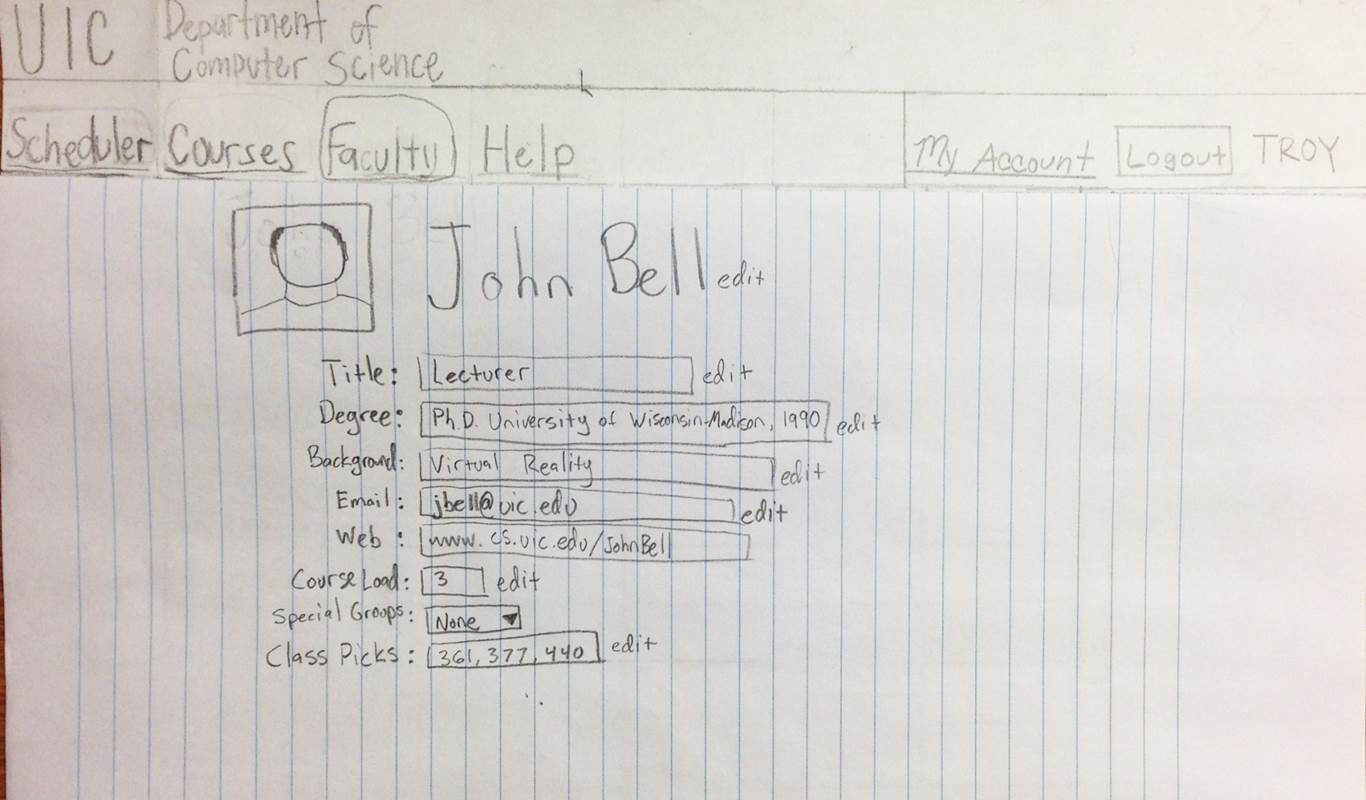 UIC Department of
Computer Science
Scheduler Courses Faculty Help My Account Logout TROY
John Bell edit
Title: Lecturer edit
Degree: Ph.D. University of Wisconsin-Madison, 1990 edit
Background: Virtual Reality edit
Email: jbell@uic.edu edit
Web : www.cs.uic.edu/JohnBell
Course Load: 3 edit
Special Groups: None
Class Picks: 361, 377, 440 edit